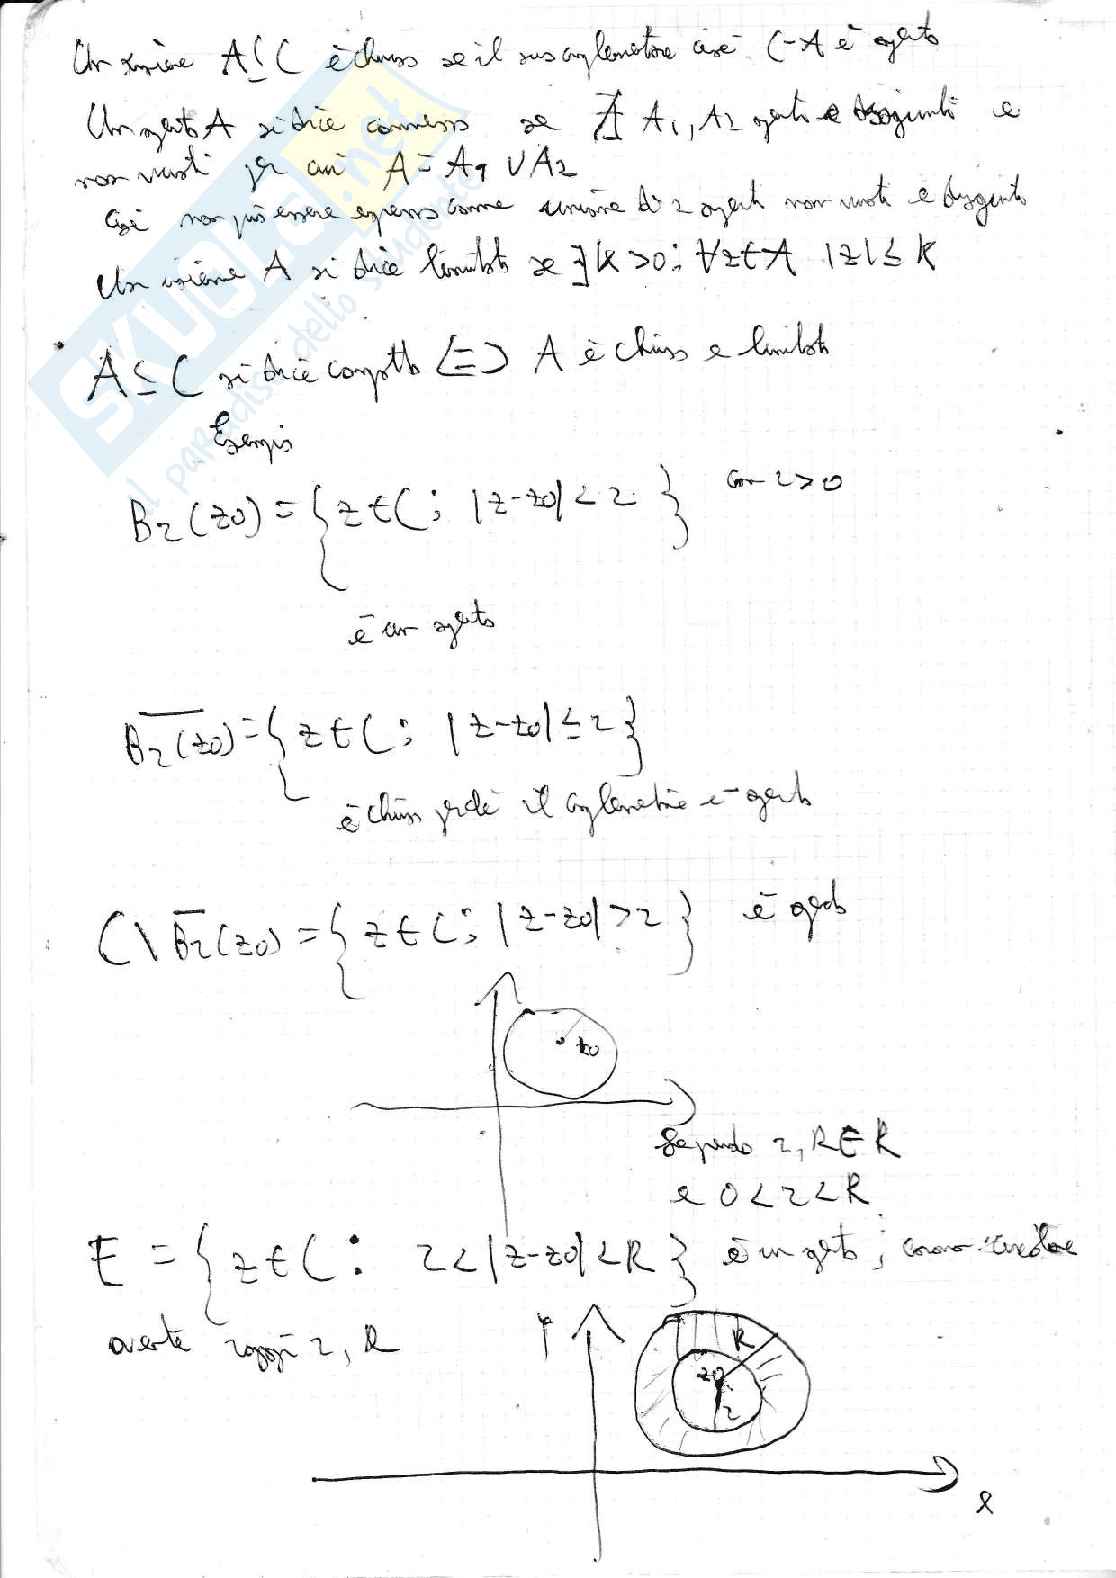 Un insieme A ⊆ C è chiuso se il suo complementare cioè C-A è aperto
Un aperto A si dice connesso se ∄ A1, A2 aperti e disgiunti e
non vuoti per cui A = A1 ∪ A2
cioè non può essere espresso come unione di 2 aperti non vuoti e disgiunti
Un insieme A si dice limitato se ∃ K > 0 : ∀ z ∈ A |z| ≤ K
A ⊆ C si dice compatto <=> A è chiuso e limitato
Esempio
Br(z0) = { z ∈ C ; |z-z0| < r } con r > 0
è un aperto
Br(z0) = { z ∈ C ; |z-z0| ≤ r }
è chiuso perché il complementare è aperto
C \ Br(z0) = { z ∈ C ; |z-z0| > r } è aperto
z0
r, R ∈ R
e 0 < r < R
E = { z ∈ C : r < |z-z0| < R } è un aperto ; corona circolare
avente raggi r, R
y
R
z0
r
x
SKUOLA.net
il paradiso dello studente